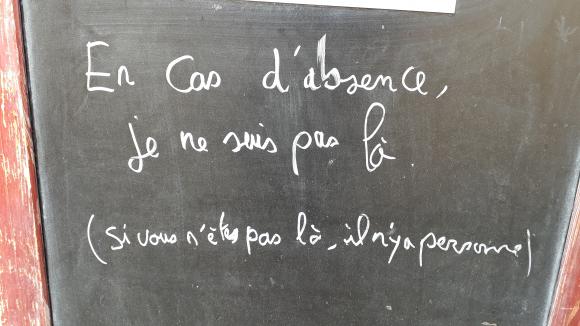 En Cas d'absence,
je ne suis pas là.
(si vous n'êtes pas là, il n'y a personne)